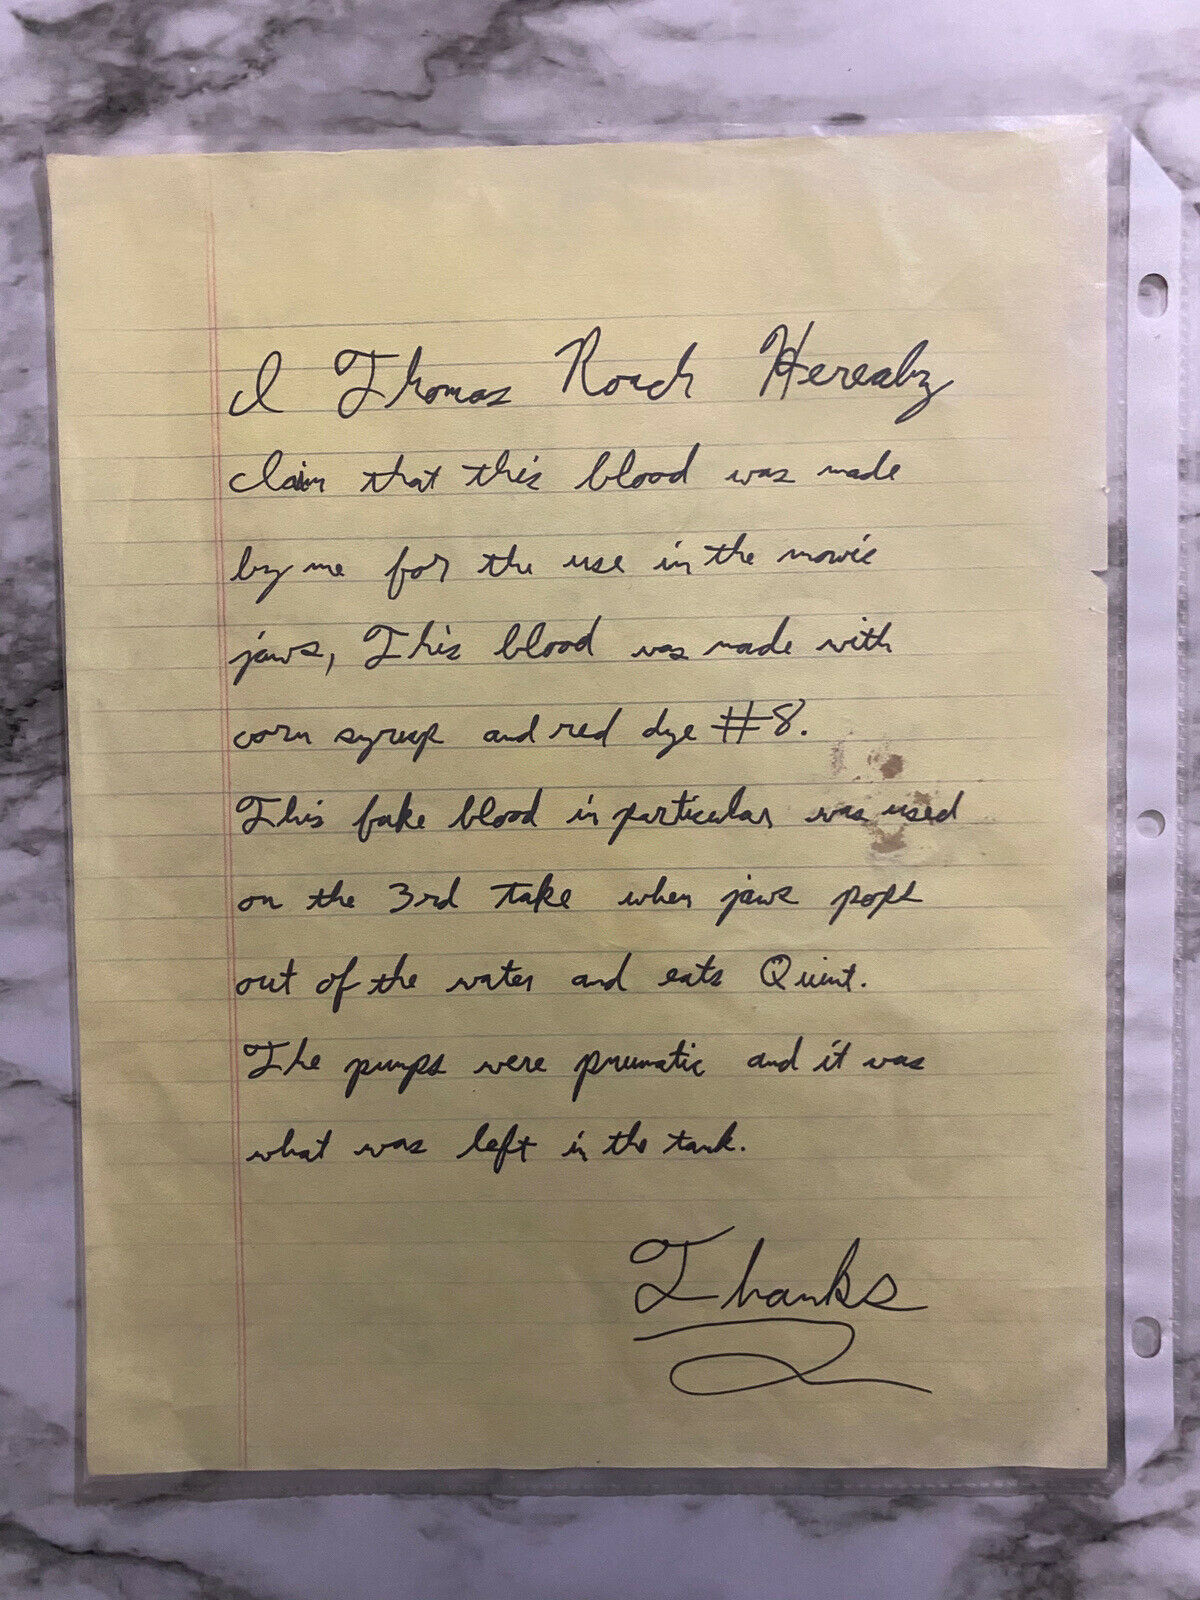 I Thomas Roach Hereabz
claim that this blood was made
by me for the use in the movie
jaws, This blood was made with
corn syrup and red dye #8.
This fake blood in particular was used
on the 3rd take when jaws pops
out of the water and eats Quint.
The pumps were pnumatic and it was
what was left in the tank.
Thanks